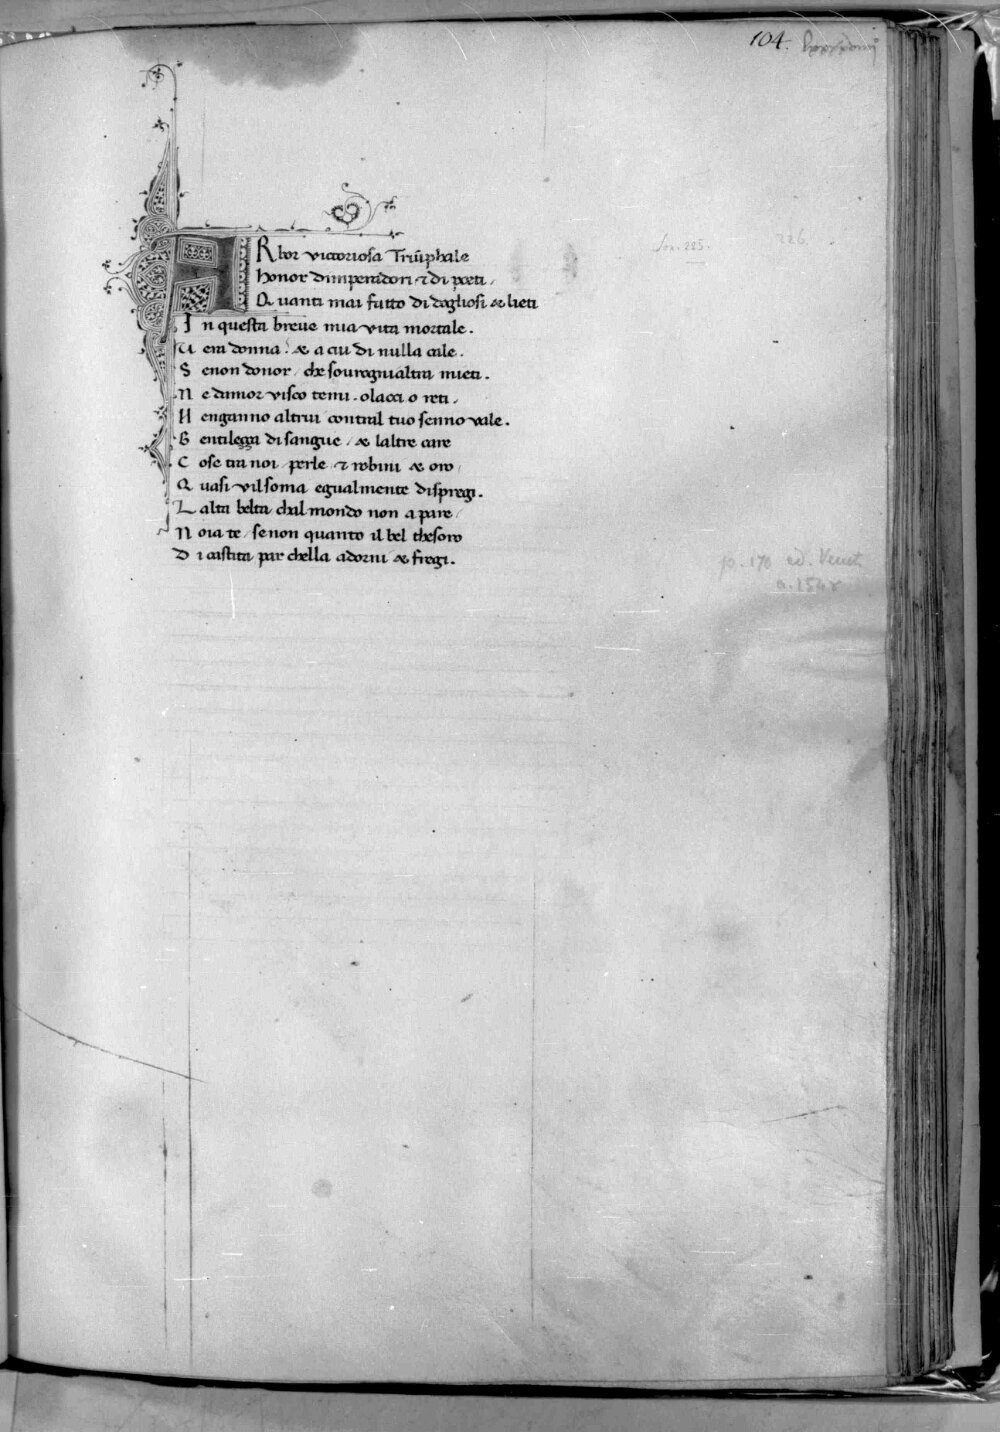 104.
ARbor victoriosa Triũphale
honor dimperadori ⁊ di poeti /
Quanti mai fatto di dogliosi & lieti
In questa breue mia vita mortale .
Uera donna / & a cui di nulla cale .
Se non donor / che soura gnialtra mieti .
Ne damor visco temi . o lacci o reti .
Ne nganno altrui contral tuo senno vale .
Gentileçça di sangue / & laltre care
Cose tra noi / perle ⁊ robini & oro /
Quasi vil soma egualmente dispregi .
Lalta belta chal mondo non a pare /
Noia te / se non quanto il bel thesoro
Di castita par chella adorni & fregi .
Son. 225.
226.
p. 170 ed. Venet